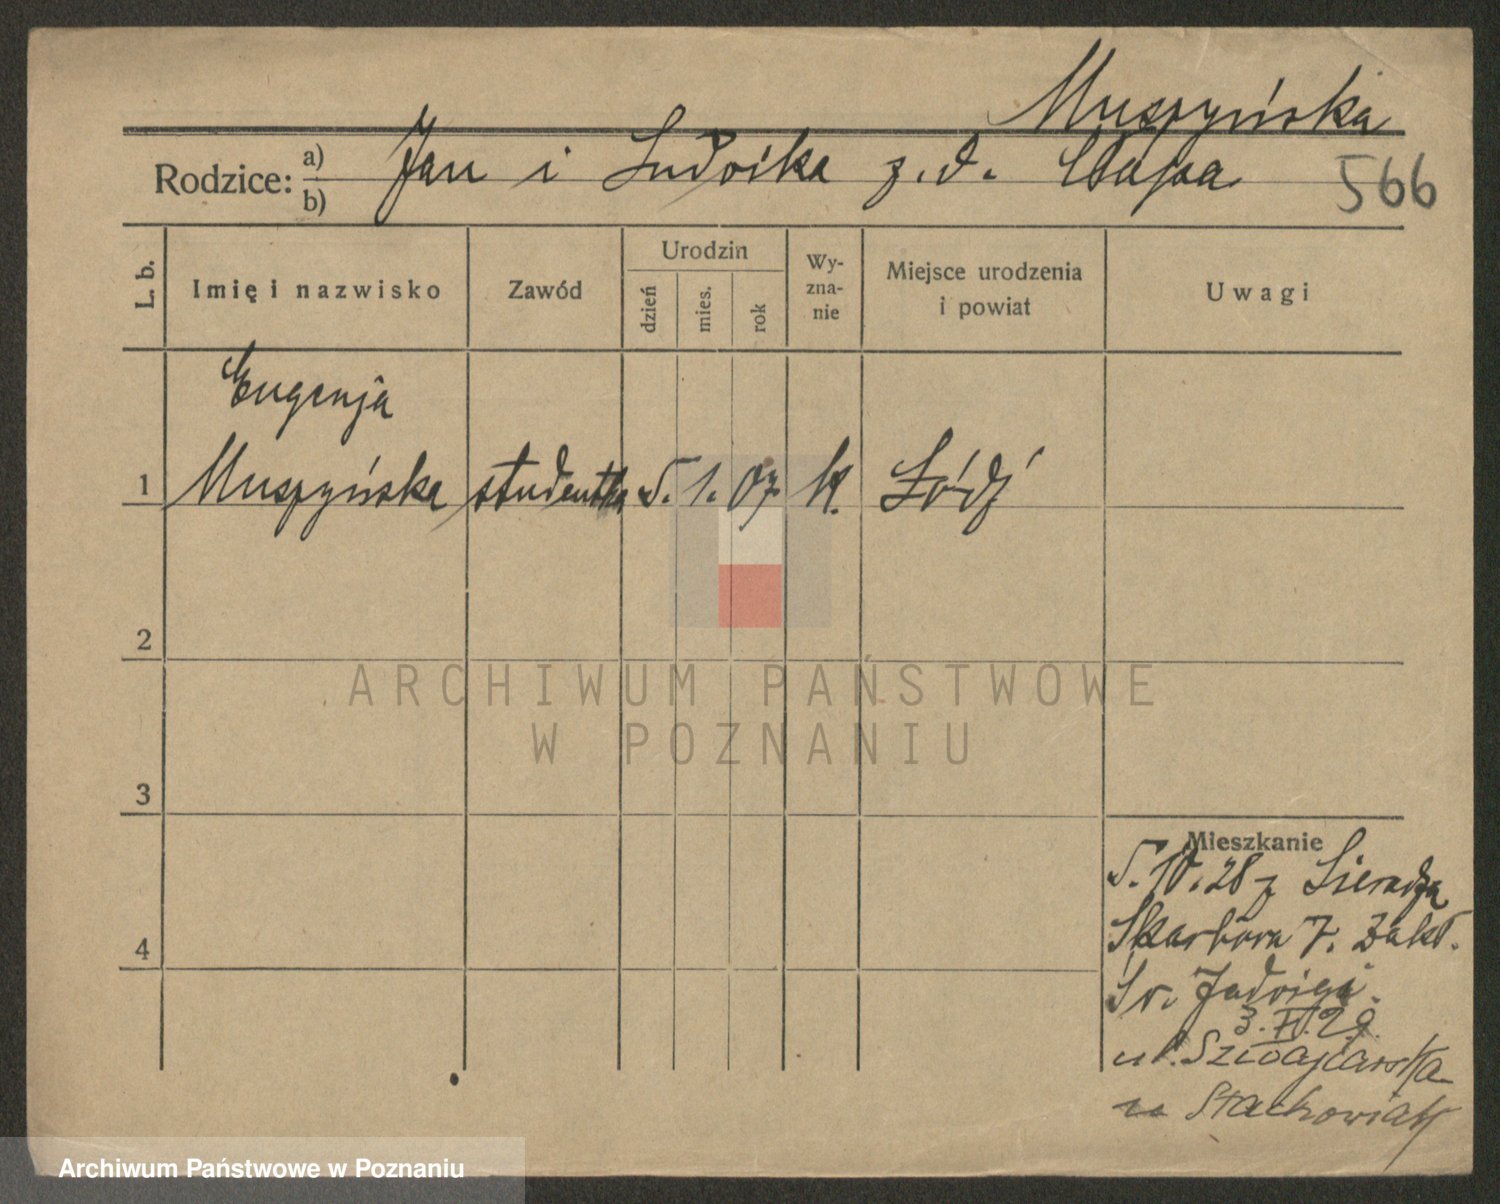 Muszyńska
Rodzice: a) b) Jan i Ludwika z. d. Słupa
566
L. b.
Imię i nazwisko
Zawód
Urodzin
dzień
mies.
rok
Wy-
zna-
nie
Miejsce urodzenia
i powiat
Uwagi
Eugenja
1 Muszyńska studentka 5. 1. 07 k. Łódź
2
3
4
Mieszkanie
5. 10. 28 z Sieradza
Skarbowa 7. Zakł.
Św. Jadwigi.
3. 29
ul. Szwajcarska
Stachowiak
ARCHIWUM PAŃSTWOWE
W POZNANIU
Archiwum Państwowe w Poznaniu